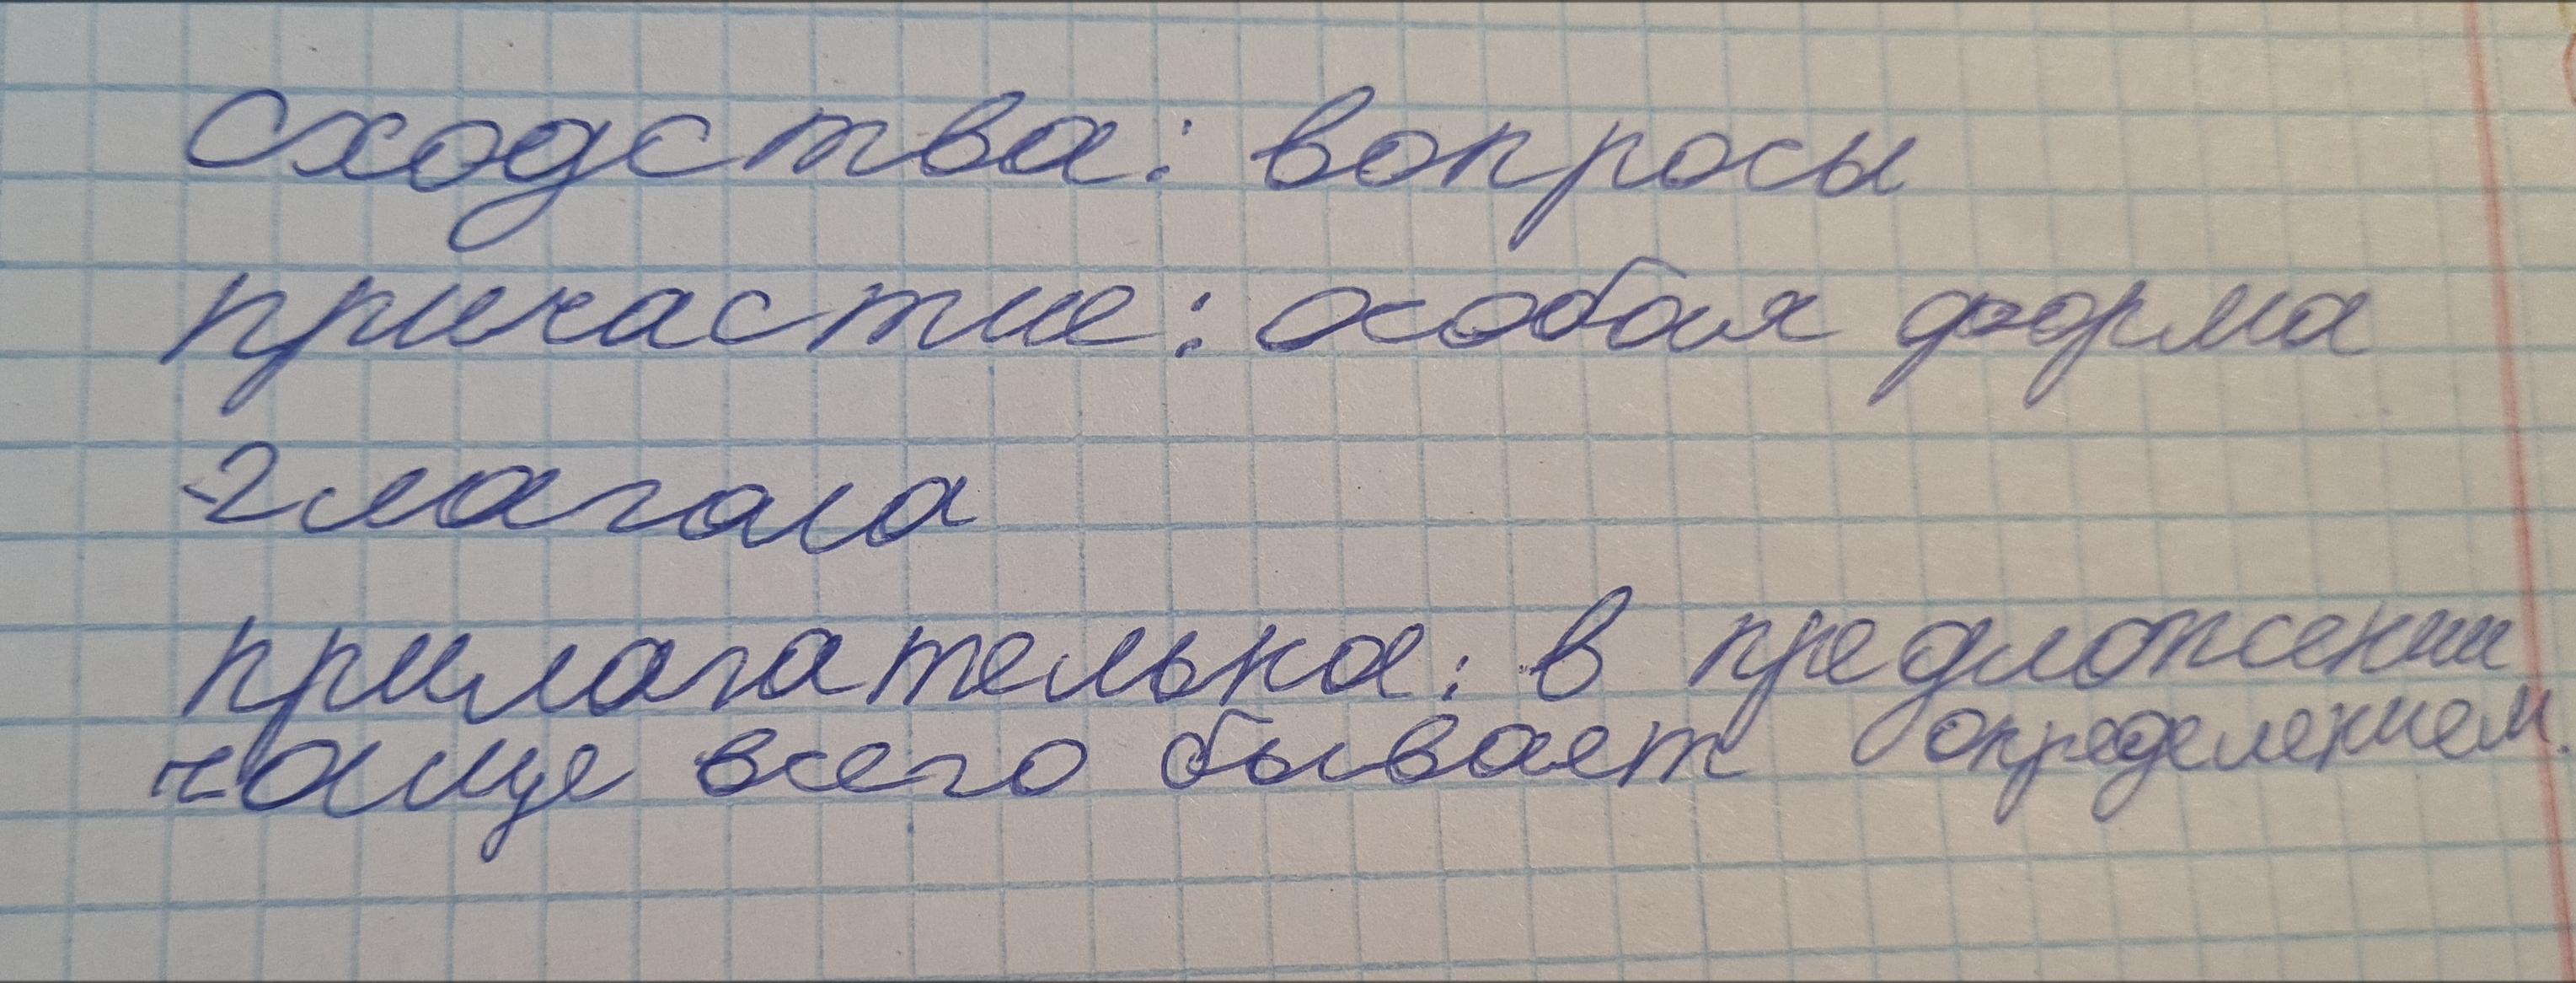 сходства: вопросы
причастие: особая форма
глагола
прилагательна: в предложении
чаще всего бывает определением.